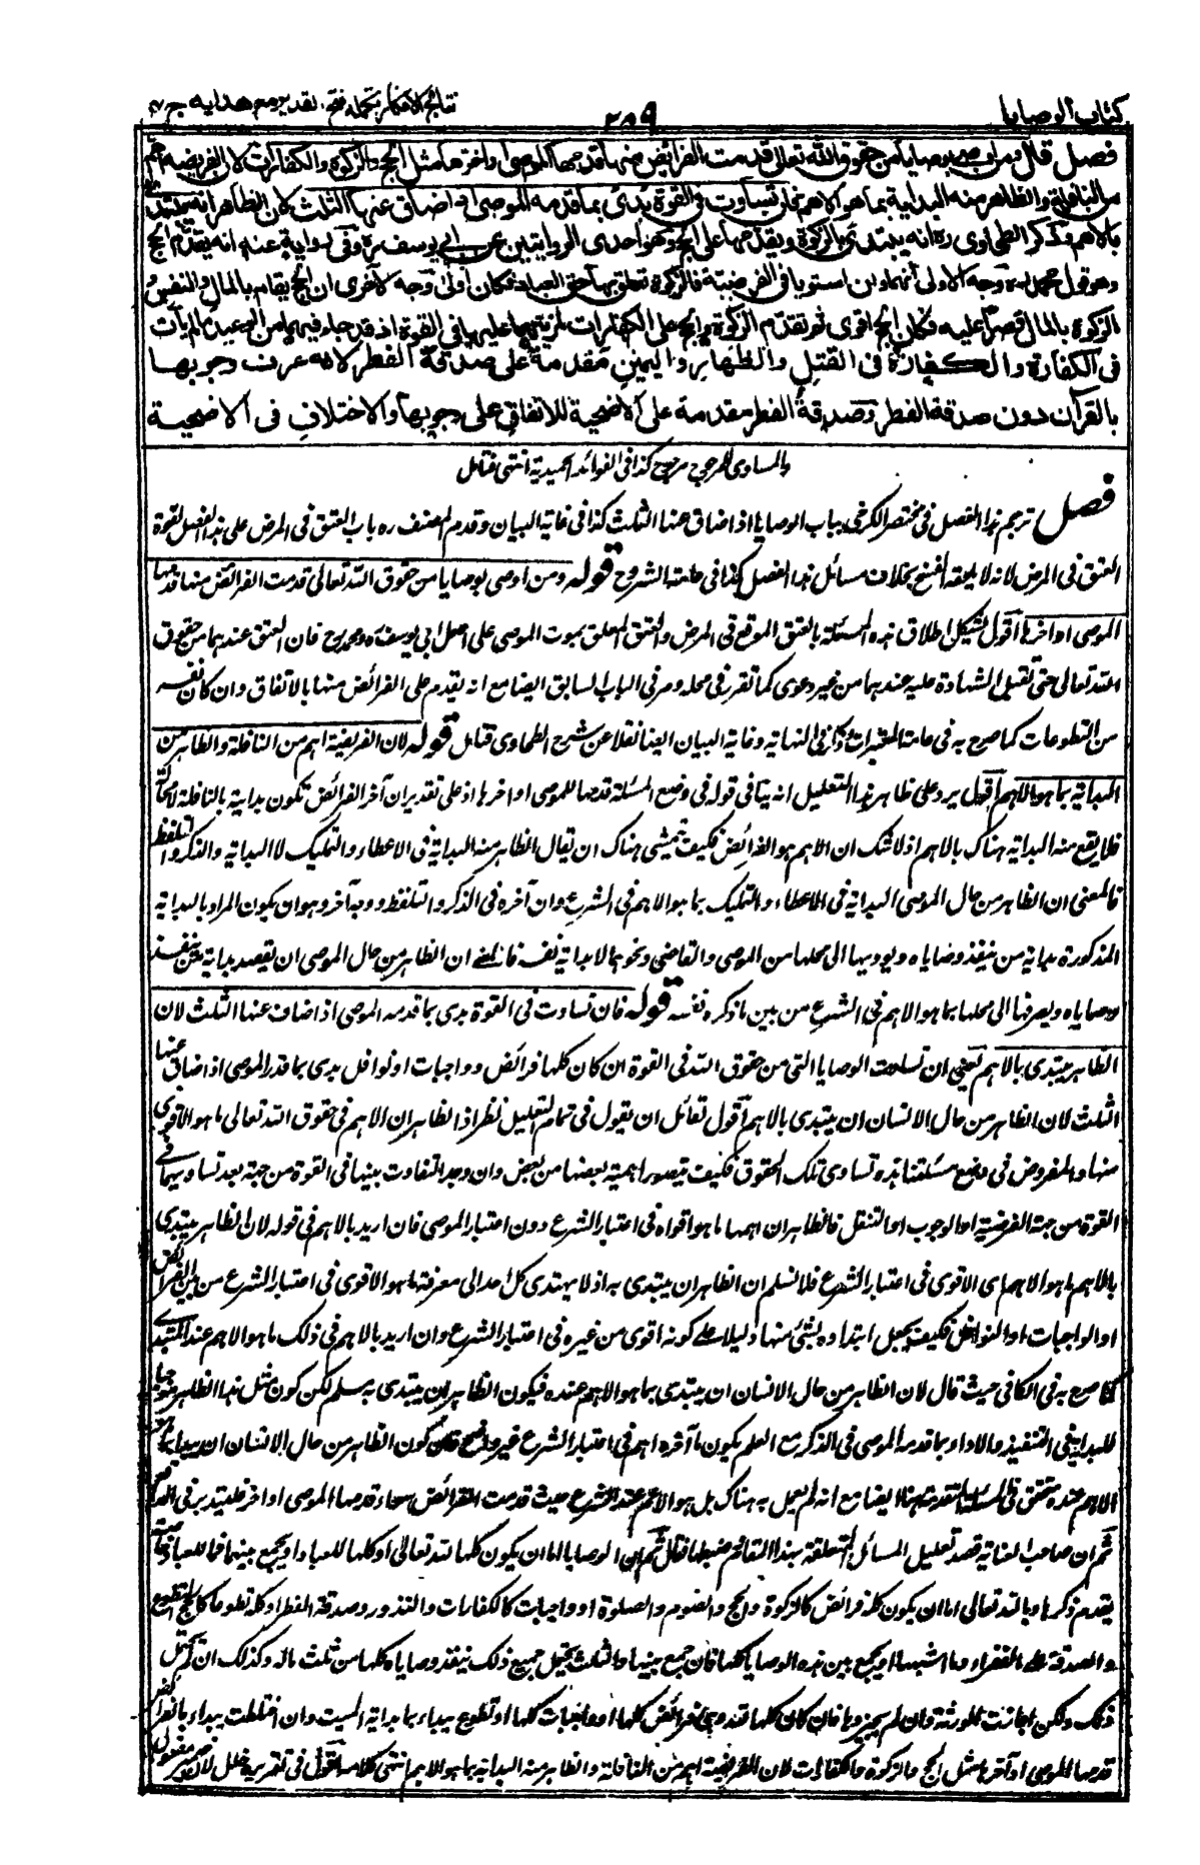 كتاب الوصايا
٢٨٩
نتائج الافكار تكملة فتح القدير مع هداية ج ٤
فصل قال ومن اوصى بوصايا من حقوق الله تعالى قدمت الفرائض منها قدمها الموصى او اخرها مثل الحج والزكوة والكفارات لان الفريضة اهم
من النافلة والظاهر منه البداية بما هو الاهم فان تساوت فى القوة بدئ بما قدمه الموصى اذا ضاق عنها الثلث لان الظاهر انه يبتدئ
بالاهم وذكر الطحاوى ره انه يبتدئ بالزكوة ويقدمها على الحج وهو احدى الروايتين عن ابى يوسف ره وفى رواية عنه انه يقدم الحج
وهو قول محمد ره وجه الاولى أنهما وان استويا فى الفرضية فالزكوة تعلق بها حق العباد فكان أولى وجه الاخرى ان الحج يقام بالمال والنفس و
الزكوة بالمال قصرا عليه فكان الحج اقوى ثم تقدم الزكوة والحج على الكفارات لمزيتهما عليها فى القوة اذ قد جاء فيهما من الوعيد ما لم يأت
فى الكفارة والكفارة فى القتل والظهار واليمين مقدمة على صدقة الفطر لانه عرف وجوبها
بالقرآن دون صدقة الفطر وصدقة الفطر مقدمة على الاضحية للاتفاق على وجوبها والاختلاف فى الاضحية
والمساوى للمرجوح مرجوح كذا فى الفوائد الحميدية انتهى فتامل
فصل ترجم هذا الفصل فى مختصر الكرخى بباب الوصايا اذا ضاق عنها الثلث كذا فى غاية البيان وقدم المصنف ره باب العتق فى المرض على هذا الفصل لقوة
العتق فى المرض لانه لا يلحقه الفسخ بخلاف مسائل هذا الفصل كذا فى عامة الشروح قوله ومن اوصى بوصايا من حقوق الله تعالى قدمت الفرائض منها قدمها
الموصى او اخرها اقول يشكل اطلاق هذه المسئلة بالعتق الموقع فى المرض والعتق المعلق بموت الموصى على اصل ابى يوسف ره ومحمد رح فان العتق عندهما من حقوق
الله تعالى حتى تقبل الشهادة عليه عندهما من غير دعوى كما تقرر فى محله ومر فى الباب السابق ايضا مع انه يقدم على الفرائض منها بالاتفاق وان كان نفسه
من التطوعات كما صرح به فى عامة المعتبرات وذكر فى النهاية وغاية البيان ايضا نقلا عن شرح الطحاوى فتامل قوله لان الفريضة اهم من النافلة والظاهر من
البداية بما هو الاهم اقول يرد على ظاهر هذا التعليل انه ينافى قوله فى وضع المسئلة قدمها الموصى او اخرها اذ على تقدير ان آخر الفرائض تكون بداية بالنافلة لا محالة
فلا يقع منه البداية هناك بالاهم اذ لا شك ان الاهم هو الفرائض فكيف يتمشى هناك ان يقال الظاهر منه البداية فى الاعطاء والتمليك لا البداية والذكر والتلفظ
فالمعنى ان الظاهر من حال الموصى البداية فى الاعطاء والتمليك بما هو الاهم فى الشرع وان آخره فى الذكر والتلفظ ووجه آخر وهو ان يكون المراد بالبداية
المذكورة بداية من ينفذ وصاياه ويوديها الى محلها من الوصى والقاضى ونحوهما لا بداية نفسه فالمعنى ان الظاهر من حال الموصى ان يقصد بداية من ينفذ
وصاياه ويصرفها الى محلها بما هو الاهم فى الشرع من بين ما ذكره نفسه قوله فان تساوت فى القوة بدى بما قدمه الموصى اذا ضاق عنها الثلث لان
الظاهر يبتدى بالاهم يعنى ان تساوت الوصايا التى من حقوق الله فى القوة ان كان كلها فرائض وواجبات او نوافل بدى بما قدم الموصى اذا ضاق عنها
الثلث لان الظاهر من حال الانسان ان يبتدى بالاهم اقول لقائل ان يقول فى تمام التعليل نظر اذ الظاهر ان الاهم فى حقوق الله تعالى ما هو الاقوى
منها والمفروض فى وضع مسئلتنا هذه تساوى تلك الحقوق فكيف يتصور اهمية بعضها من بعض وان وجد التفاوت بينها فى القوة من جهة بعد تساويهما فى
القوة من جهة الفرضية او الوجوب او التنفل فالظاهر ان اهمها ما هو اقواه فى اعتبار الشرع دون اعتبار الموصى فان اريد بالاهم فى قوله لان الظاهر يبتدى
بالاهم ما هو الاهم اى الاقوى فى اعتبار الشرع فلا نسلم ان الظاهر ان يبتدى به اذ لا يهتدى كل احد الى معرفة ما هو الاقوى فى اعتبار الشرع من بين الفرائض
او الواجبات او النوافل فكيف يجعل ابتداءه بشئ منها دليلا على كونه اقوى من غيره فى اعتبار الشرع وان اريد بالاهم فى ذلك ما هو الاهم عند المبتدى
كما صرح به فى الكافى حيث قال لان الظاهر من حال الانسان ان يبتدى بما هو الاهم عنده فيكون الظاهر ان يبتدى به مسلم لكن كون مثل هذا الظاهر موجبا
للبداية فى التنفيذ والاداء بما قدمه الموصى فى الذكر مع العلم بكون ما آخره اهم فى اعتبار الشرع غير واضح فان كون الظاهر من حال الانسان ان يبدأ بما هو
الاهم عنده متحقق فى المسئلة المتقدمة هنا ايضا مع انه لم يعمل به هناك بل بما هو الاهم عند الشرع حيث قدمت الفرائض سواء قدمها الموصى او اخرها فليتدبر فى
ثم ان صاحب العناية قصد تعليل المسائل المتعلقة بهذا المقام وضبطها فقال ثم ان الوصايا اما ان يكون كلها لله تعالى او كلها للعباد او يجمع بينهما فما للعباد خاصة
يقدم ذكرها وما لله تعالى اما ان يكون كله فرائض كالزكوة والحج والصوم والصلوة او واجبات كالكفارات والنذور وصدقة الفطر او كله تطوعا كالحج التطوع
والصدقة على الفقراء وما اشبهها او يجمع بين هذه الوصايا كلها فان جمع بينها والثلث يحتمل جميع ذلك ينفذ وصاياه كلها من ثلث ماله وكذلك ان لم يحتمل
ذلك ولكن اجازت الورثة وان لم يجيزوها فان كان كلها لله وهى فرائض كلها او واجبات كلها او تطوع يبداء بما بداء به الميت وان اختلطت يبداء بالفرائض
قدمها الموصى او آخرها مثل الحج والزكوة والكفارات لان الفريضة اهم من النافلة والظاهر منه البداية بما هو الاهم انتهى كلامه اقول فى تقريره خلل لان